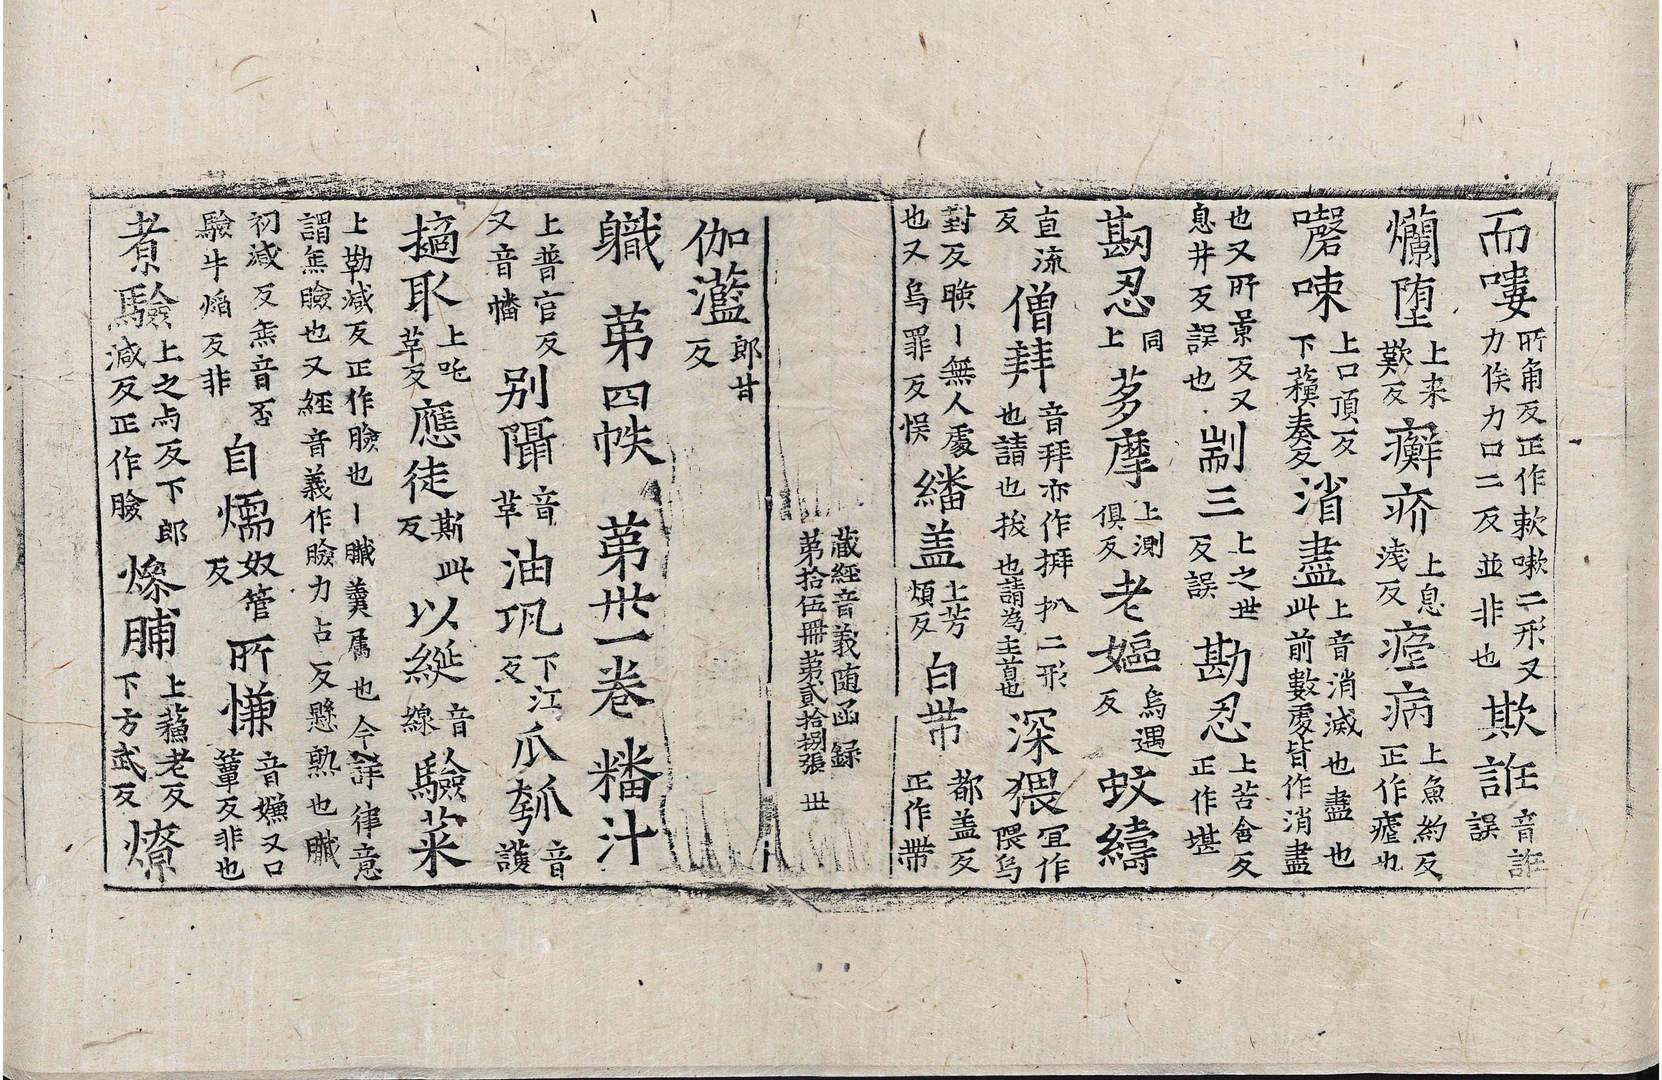 而嘍所角反正作軟嗽二形又力侯力口二反並非也欺誑音誑誤
爛堕上来歎反癬疥上息浅反瘧病上魚約反正作瘧也
㗋唻上口頂反下蘓奏反消盡上音消滅也盡也此前數處皆作消盡
也又所景反又息井反誤也剬三上之世反誤勘忍上苦含反正作堪
勘忍同上茤摩上測俱反老嫗烏遇反蚊繑
直流反僧拜音拜亦作拜扒二形也請也拔也請為主首也深猥宜作隈烏
對反䀹〡無人處也又烏罪反悮繙盖上芳煩反白带都盖反正作帶
藏經音義随函録
第拾伍冊第貳拾捌張 丗
伽灆郎甘反
軄 第四帙 第丗一卷 𥼶汁
上普官反又音幡别隔音革油瓨下江反瓜瓠音護
擿取上吒革反應徒斯此反以綖音線驗菜
上勒減反正作臉也〡臟羹属也今詳律意謂無臉也又經音義作臉力占反懸勲也臟
初減反無音否驗牛焰反非自煗奴管反所慊音嫌又口蕇反非也
煑驗上之与反下郎減反正作臉㷮脯上蘓老反下方武反燎